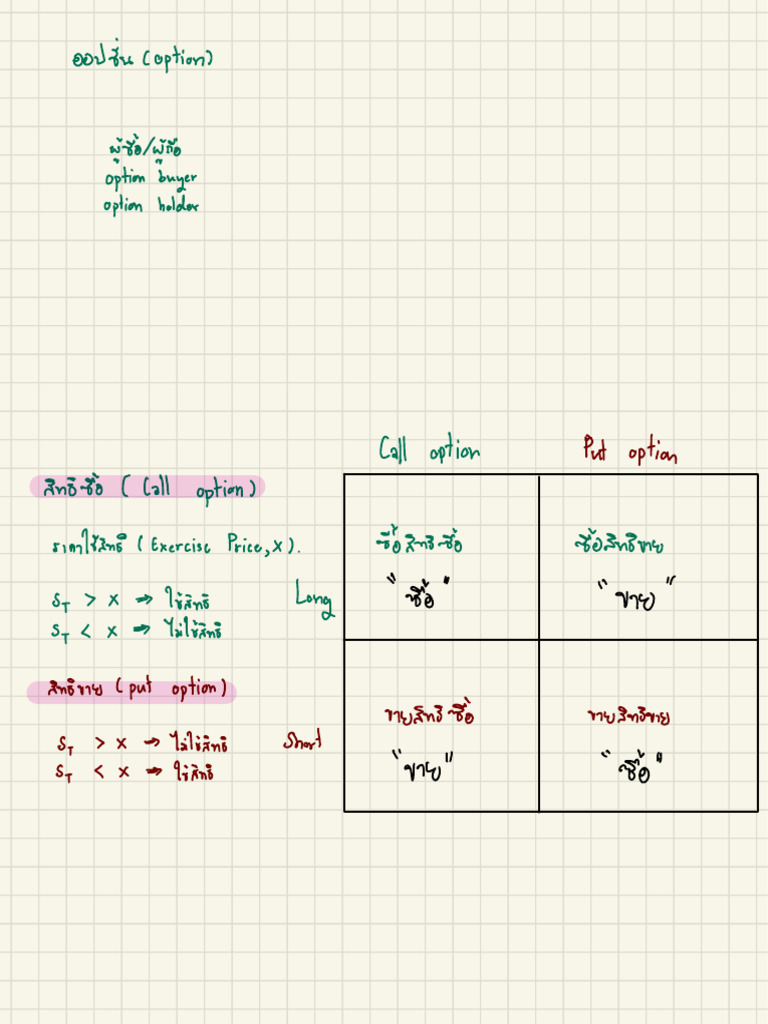 ออปชั่น (option)
ผู้ซื้อ/ผู้ถือ
option buyer
option holder
Call option
Put option
สิทธิซื้อ (Call option)
ราคาใช้สิทธิ (Exercise Price, X).
S_T > X → ใช้สิทธิ
S_T < X → ไม่ใช้สิทธิ
Long
ซื้อสิทธิซื้อ
"ซื้อ"
ซื้อสิทธิขาย
"ขาย"
สิทธิขาย (put option)
S_T > X → ไม่ใช้สิทธิ
S_T < X → ใช้สิทธิ
Short
ขายสิทธิซื้อ
"ขาย"
ขายสิทธิขาย
"ซื้อ"